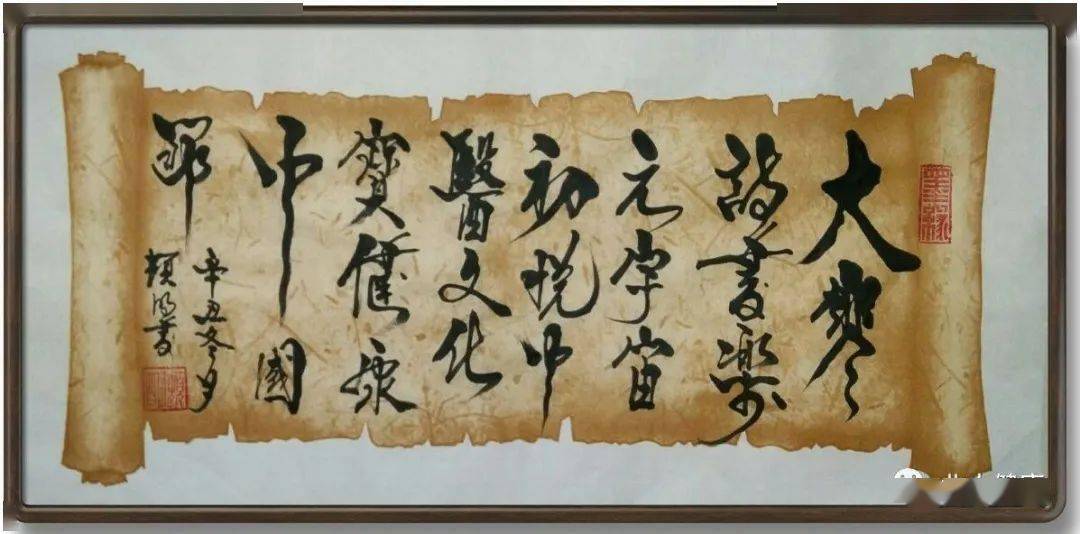 大寒
詩書樂
元宇宙
初悦中
醫文化
寶健康
中國
辛丑冬月
書
墨缘